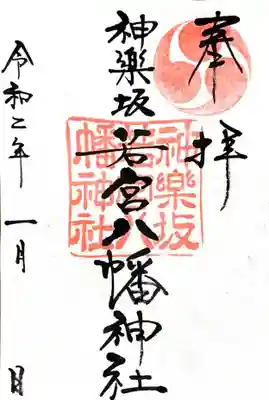 奉拝
神楽坂若宮八幡神社
神樂坂若宮八幡神社
令和二年 一月 日